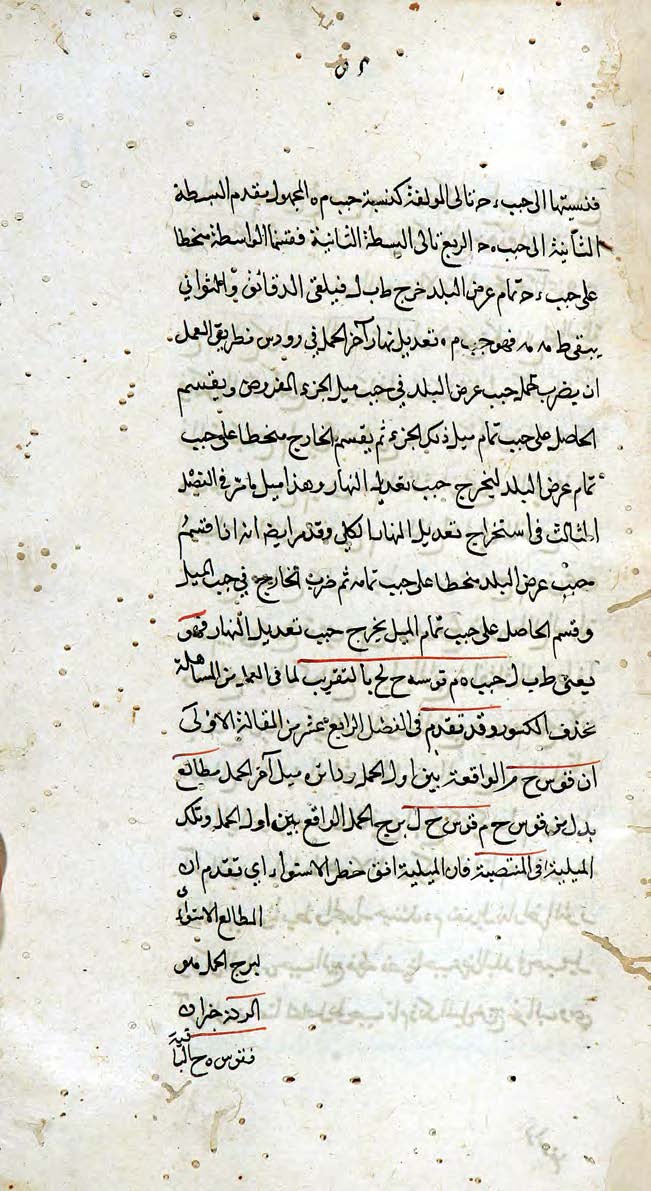 فنسبتها الى جيب ء ح تالى المولفة كنسبة جيب م ه المجهول مقدم البسيطة
الثانية الى جيب ه ح الربع تالى البسيطة الثانية فقسمنا الواسطة منحطا
على جيب ء ح تمام عرض البلد خرج ط ب ل فيلقى الدقائق والثواني
يبقى ط مه مه فهو جيب م ه تعديل نهار آخر الحمل في رودس فطريق العمل
ان يضرب جيب عرض البلد في جيب ميل الجزء المفروض ويقسم
الحاصل على جيب تمام ميل ذلك الجزء ثم يقسم الخارج منحطا على جيب
تمام عرض البلد ليخرج جيب تعديل النهار وهذا مثل ما مر في الفصل
الثالث في استخراج تعديل النهار الكلي وقد مر ايضا انه اذا قسم
جيب عرض البلد منحطا على جيب تمامه ثم ضرب الخارج في جيب الميل
وقسم الحاصل على جيب تمام الميل يخرج جيب تعديل النهار فهو
يعنى ط ب ل جيب ه م قوسه ح لح بالتقريب لما في العمل من المساهلة
بحذف الكسور وقد تقدم في الفصل الرابع عشر من المقالة الاولى
ان قوس ح م الواقعة بين اول الحمل ودائرة ميل آخر الحمل مطالع
بدل من قوس ح م قوس ح ل برج الحمل الواقع بين اول الحمل وتلك
الميلية في المنتصبة فان الميلية افق خط الاستواء اي تقدم ان
المطالع الاستوائى
لبرج الحمل هو
الردة جزان
فقوس ه ح الباقية